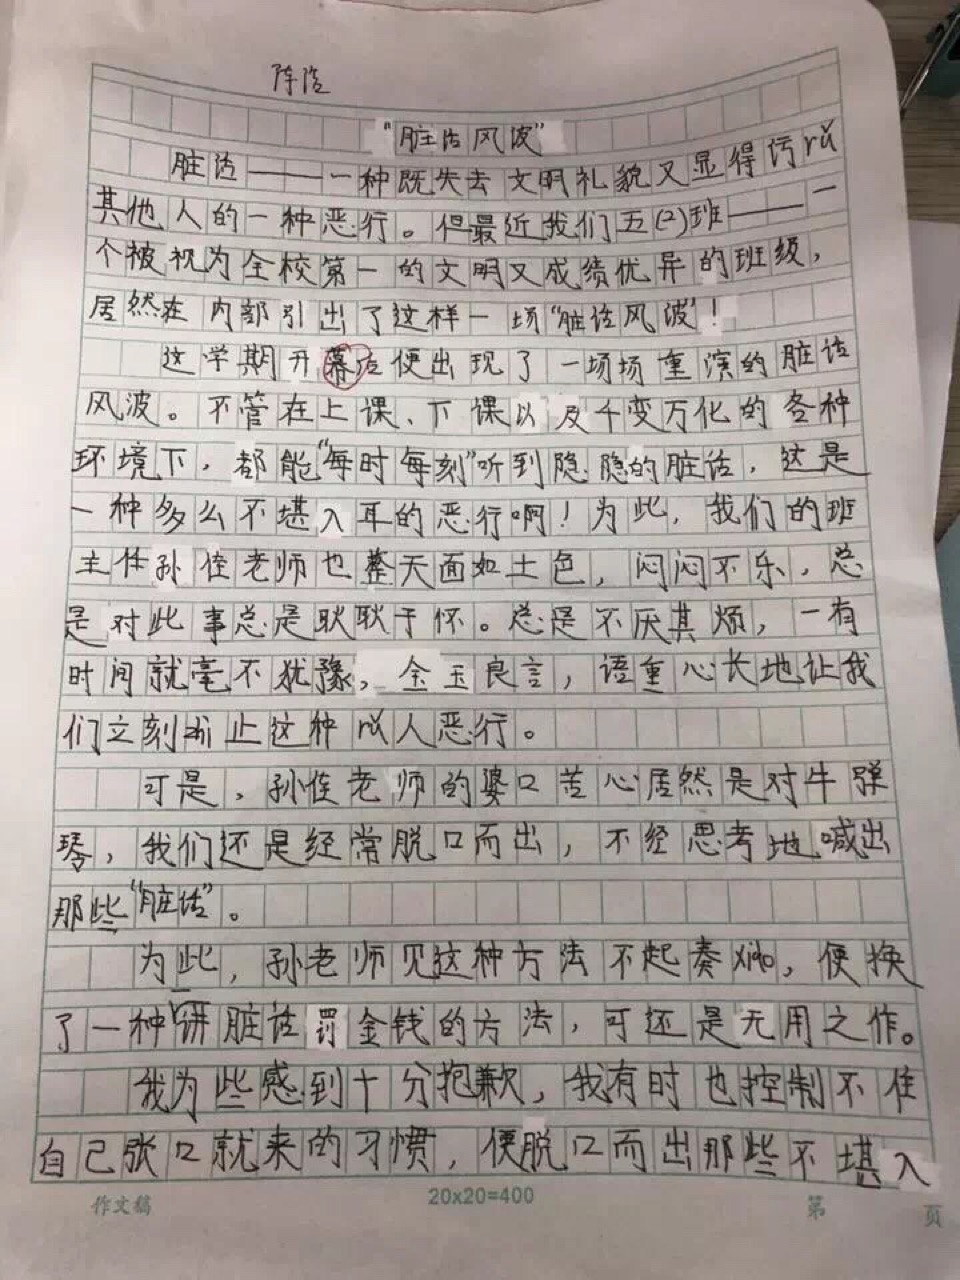 陈浩
“脏话风波”
脏话——一种既失去文明礼貌又显得污rǔ
其他人的一种恶行。但最近我们五(2)班——一
个被视为全校第一的文明又成绩优异的班级，
居然在内部引出了这样一场“脏话风波”！
这学期开幕后便出现了一场场重演的脏话
风波。不管在上课、下课以及千变万化的各种
环境下，都能“每时每刻”听到隐隐的脏话，这是
一种多么不堪入耳的恶行啊！为此，我们的班
主任孙佳老师也整天面如土色，闷闷不乐，总
是对此事总是耿耿于怀。总是不厌其烦，一有
时间就毫不犹豫，金玉良言，语重心长地让我
们立刻制止这种 人恶行。
可是，孙佳老师的婆口苦心居然是对牛弹
琴，我们还是经常脱口而出，不经思考地喊出
那些“脏话”。
为此，孙老师见这种方法不起奏xiào，便换
了一种讲脏话罚金钱的方法，可还是无用之作。
我为些感到十分抱歉，我有时也控制不住
自己张口就来的习惯，便脱口而出那些不堪入
作文稿
20x20=400
第 页